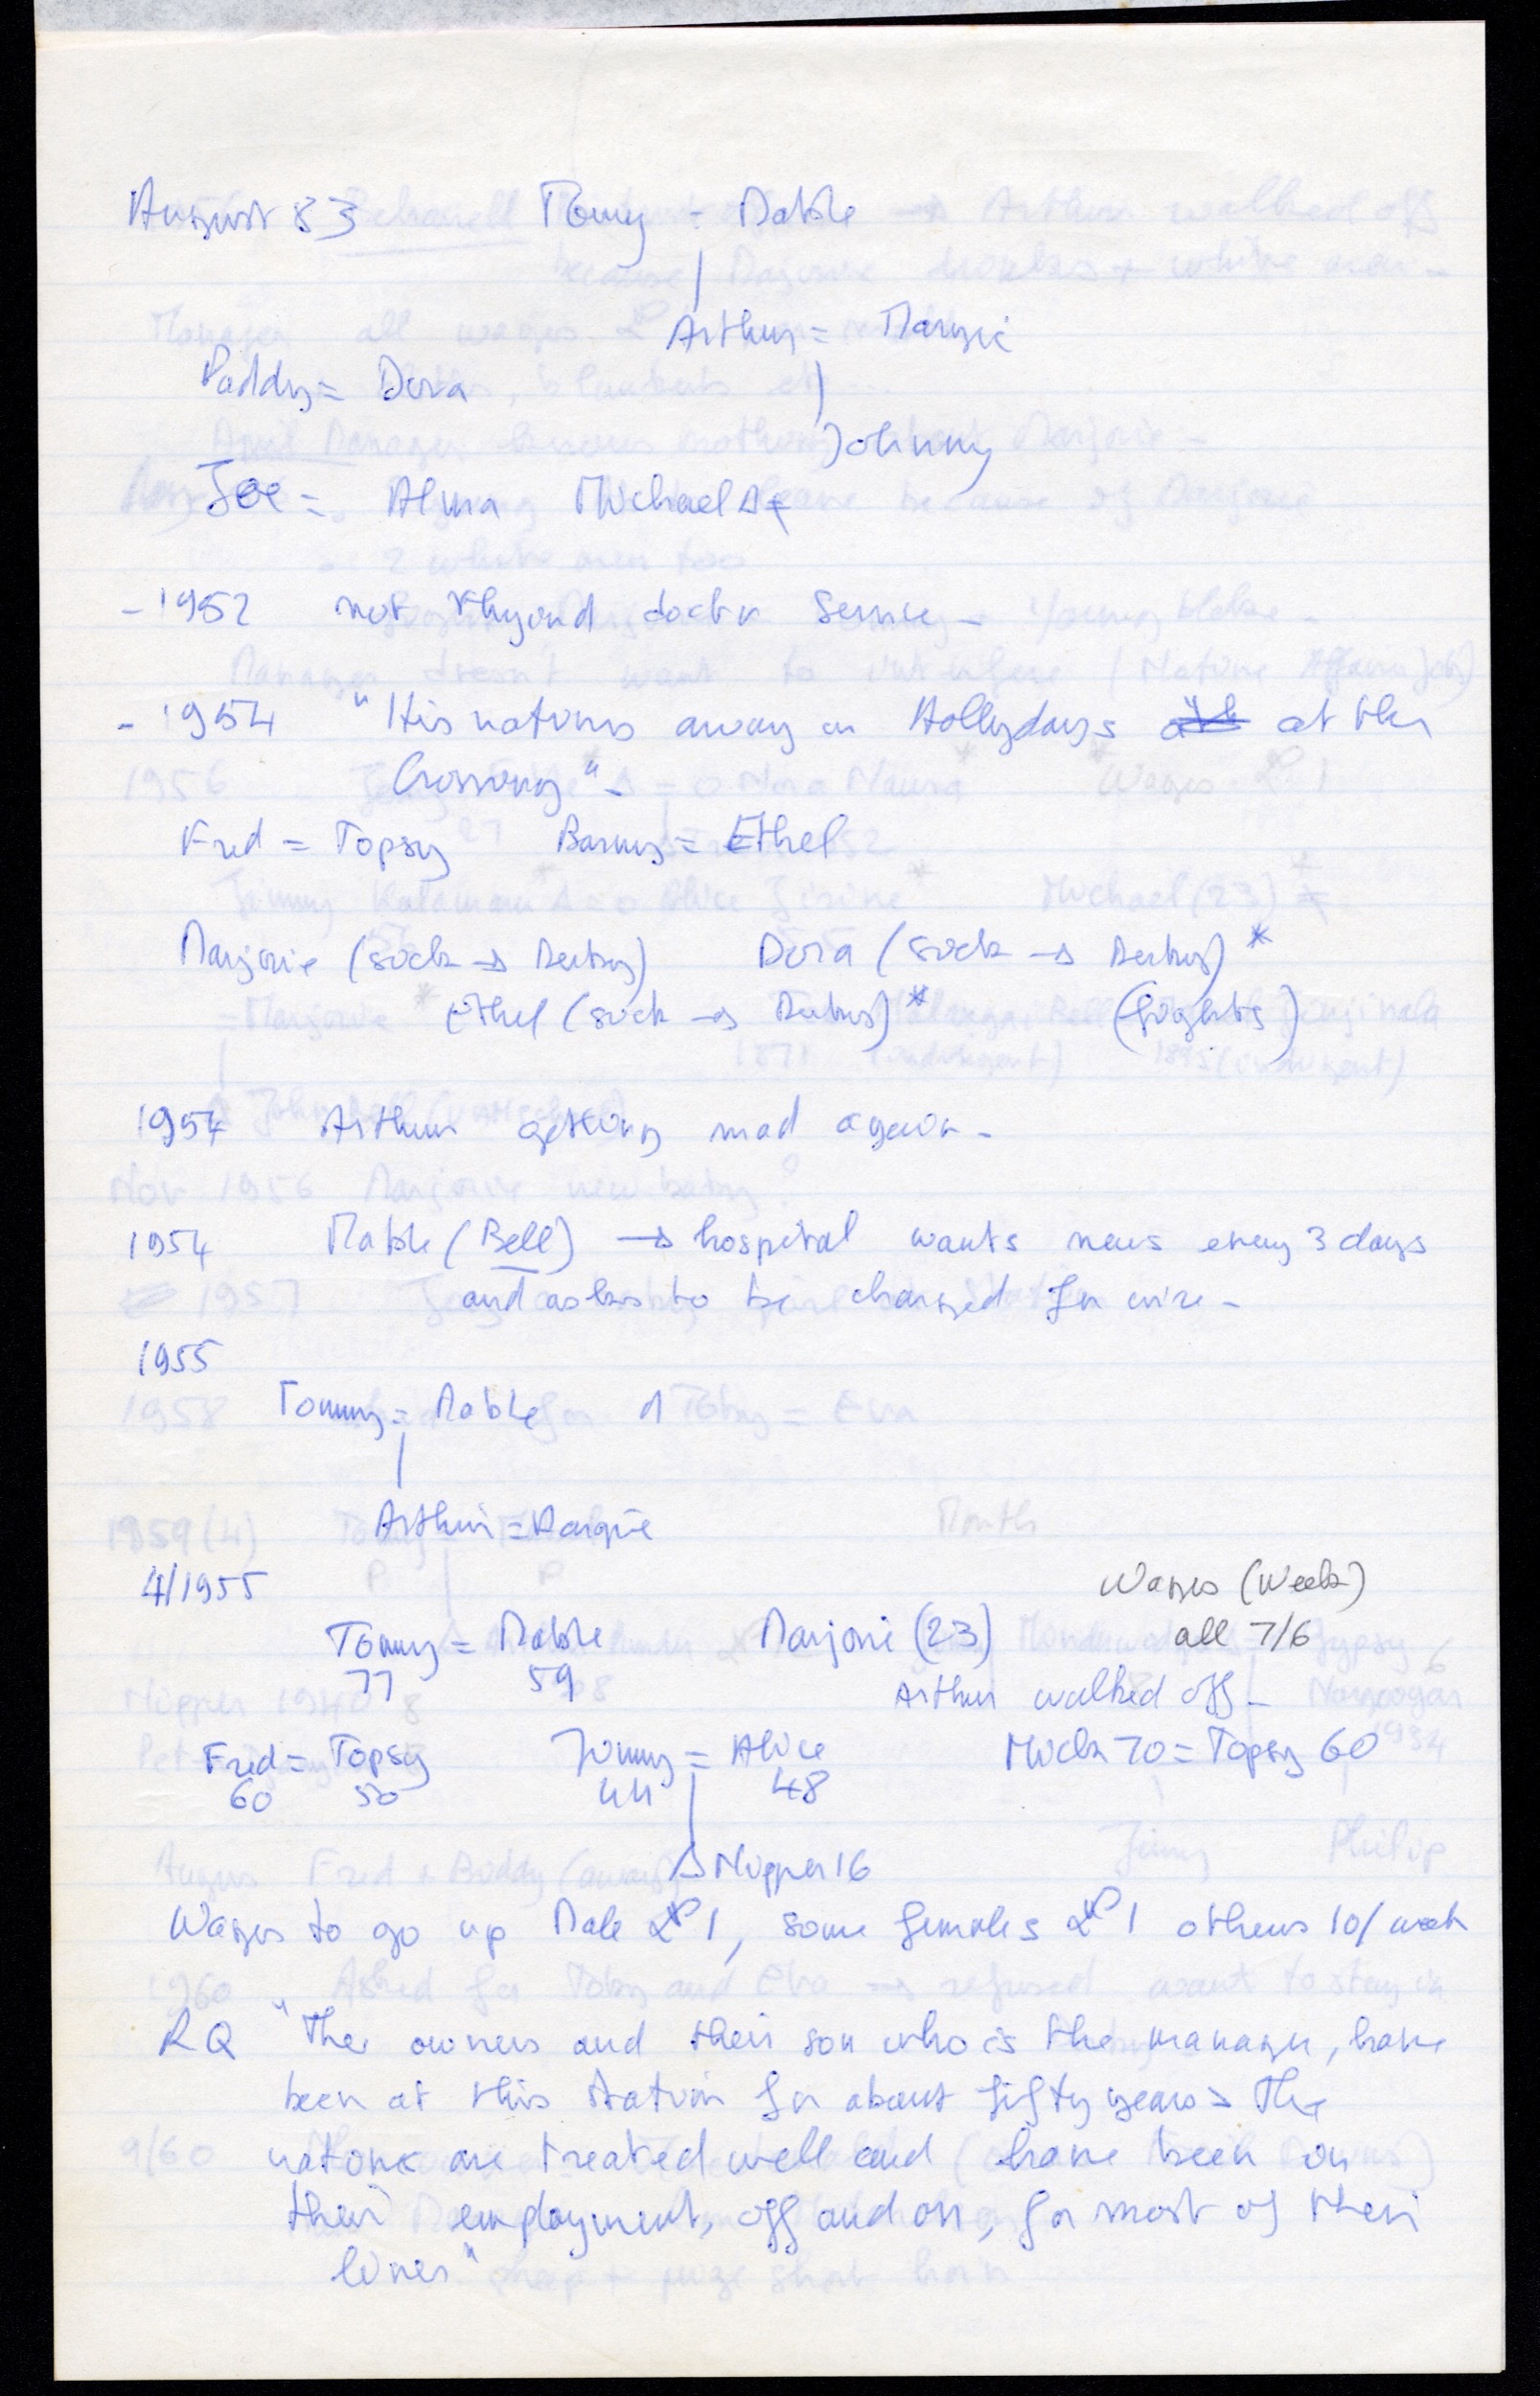 August 83 Tommy = Mable
Arthur = Margie
Paddy = Dora
Johnny
Joe = Alma Michael
- 1952 not Flying doctor Service -
- 1954 "His natives away on Hollydays at the
Crossing" -
Fred = Topsy Barney = Ethel
Marjorie (sick → Derby) Dora (sick → Derby) *
Ethel (sick → Derby) * (fights)
1954 Arthur getting mad again -
1954 Mable (Bell) → hospital wants news every 3 days
and asks to be charged for wire -
1955
Tommy = Mable
Arthur = Margie
4/1955 Wages (Week)
Tommy = Mable Marjorie (23) all 7/6
77 59 Arthur walked off -
Fred = Topsy Jimmy = Alice Mick 70 = Topsy 60
60 50 44 48
Δ Nipper 16
Wages to go up Male £1, some females £1 others 10/ week
RQ "The owners and their son who is the manager, have
been at this station for about fifty years. The
natives are treated well and have been on
their employment, off and on, for most of their
lives"